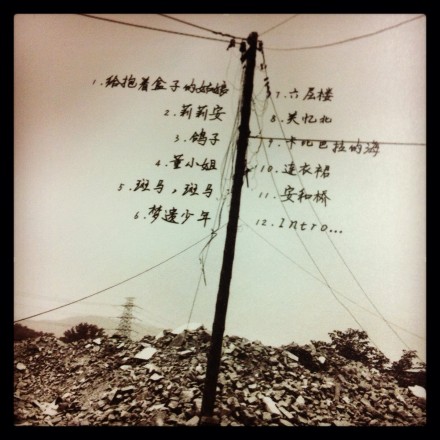 1.给抱着盒子的姑娘
2.莉莉安
3.鸽子
4.董小姐
5.斑马,斑马
6.梦遗少年
7.六层楼
8.关忆北
9.卡比巴拉的海
10.连衣裙
11.安和桥
12.Intro...